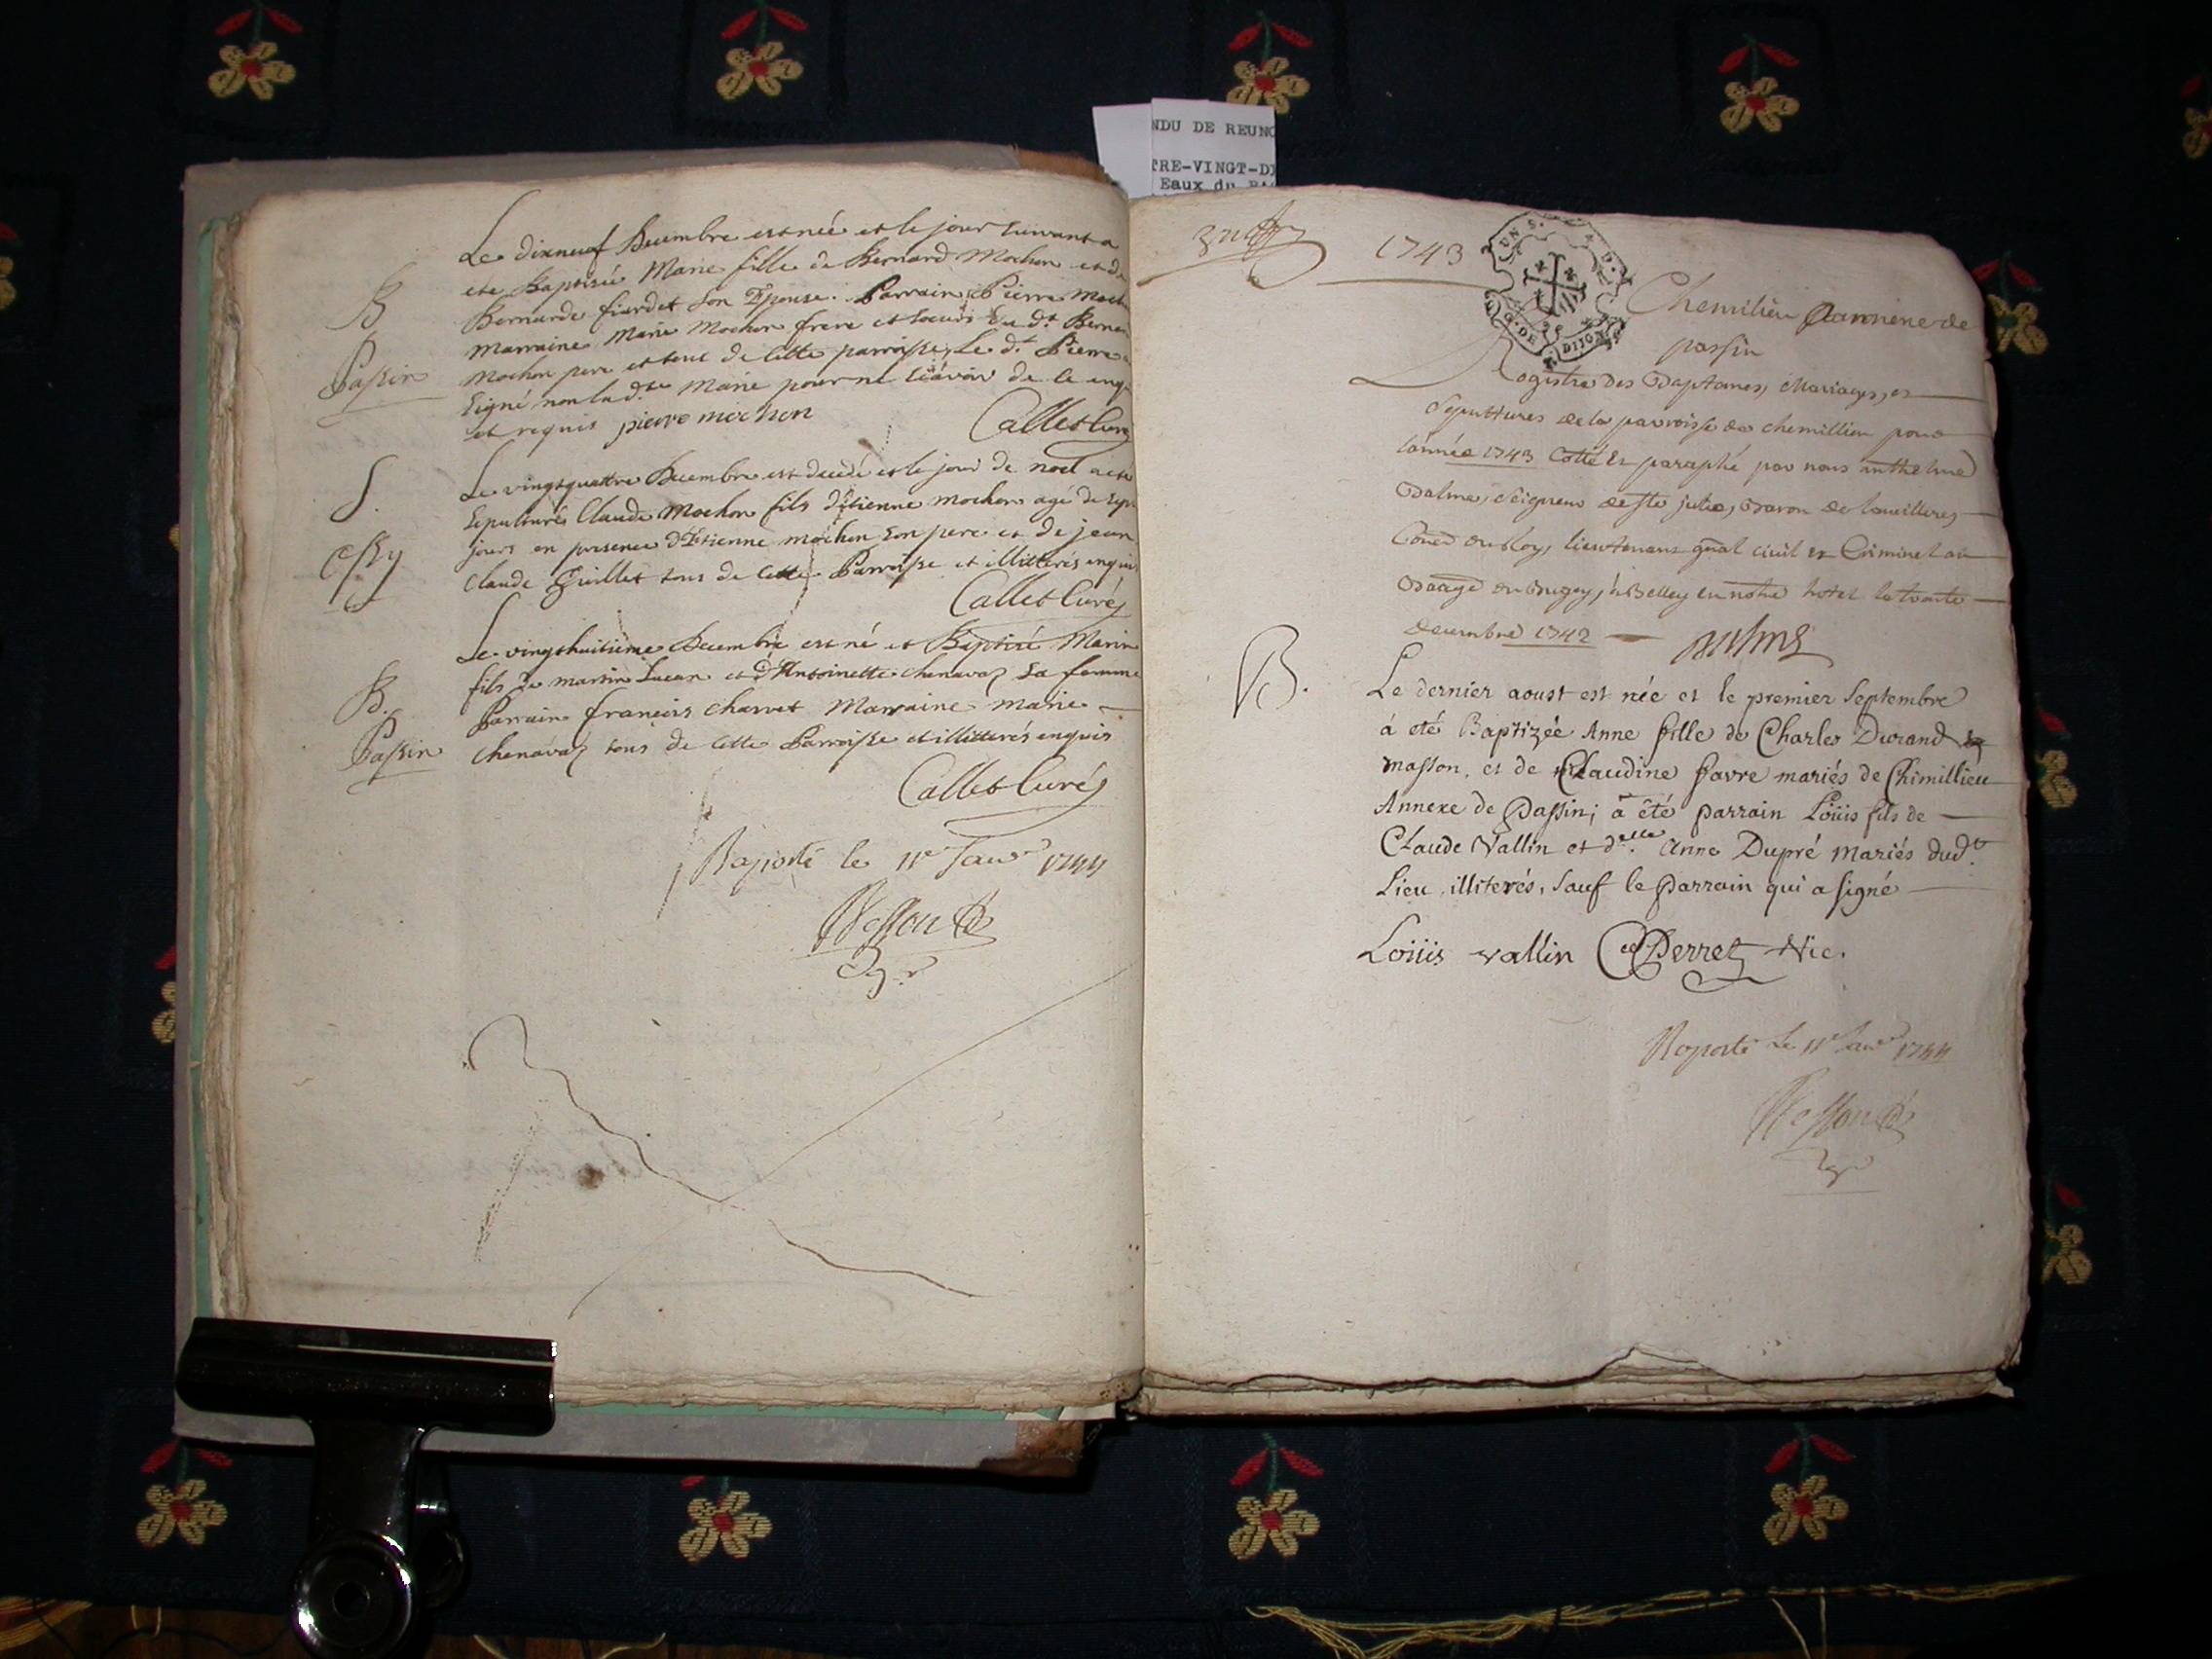 NDU DE REUNO
TRE-VINGT-DI
Eaux du
Le dixneuf Decembre est née et le jour suivant a
été Baptisée Marie fille de Bernard Mochon et de
B
Bernarde fiardet son Epouse. Parrain Pierre Moch
Marraine Marie Mochon frere et soeur du d.t Berna
Passin
Mochon pere et tous de cette parroisse, Le d.t Pierre
signé non la d.te Marie pour ne sçavoir de ce enq
et requis pierre mochon
Callet Curé
S.
Le vingtquattre Decembre est decedé et le jour de noel a eté
sepulturé Claude Mochon fils d'Etienne mochon agé de sept
essy
jours en presence d'Etienne mochon son pere et de jean
claude Guillet tous de cette Parroisse et illitterés enquis
Callet Curé
Le vingthuitieme Decembre est né et Baptisé Marin
fils de martin et d'Antoinette chenavaz sa femme
B.
Parrain françois charvet Marraine marie
Passin
chenavaz tous de cette Parroisse et illitterés enquis
Callet Curé
Raporté le 11e Janvr 1744
1743
UN S.
G. DE DIJON
Chemilieu annexe de
passin
Registre des Baptames, Mariages, et
Sepultures de la parroisse de chemillieu pour
l'année 1743 Cotté et paraphé par nous anthelme
Balme, Seigneur de Ste julie, Baron de
Conser du Roy, lieutenant gnal civil et Criminel au
Baage du Bugey, à Belley en notre hotel le trente
decembre 1742
B.
Le dernier aoust est née et le premier Septembre
à eté Baptizée Anne fille de Charles Durand
masson, et de Claudine favre mariés de Chimillieu
Annexe de Passin; à êté parrain Loüis fils de
Claude Vallin et d.elle Anne Dupré mariés dud.t
Lieu, illiterés, sauf le Parrain qui a signé
Loüis vallin Perret Vic.
Raporté le 11e Janvr 1744